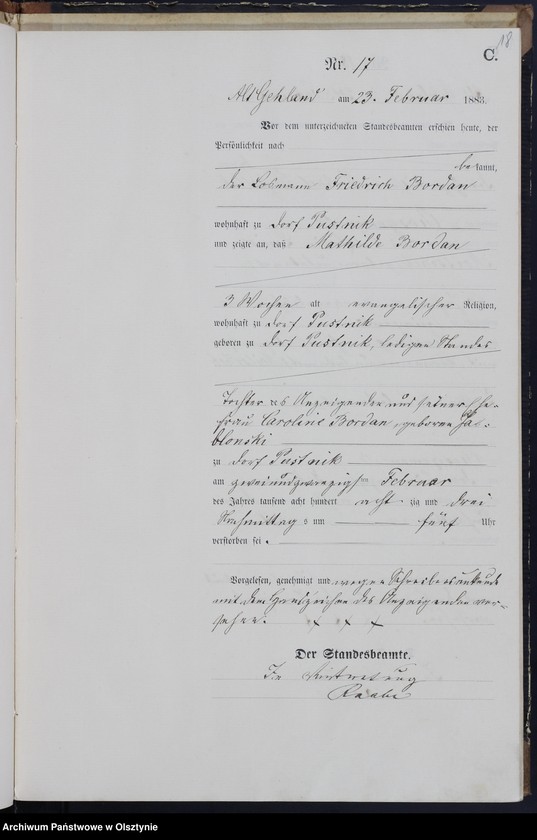 18
C.
Nr. 17
Alt Gehland am 23. Februar 1883.
Vor dem unterzeichneten Standesbeamten erschien heute, der
Persönlichkeit nach
bekannt,
der Losmann Friedrich Bordan
wohnhaft zu Dorf Pustnik
und zeigte an, daß Mathilde Bordan
3 Wochen alt evangelischer Religion,
wohnhaft zu Dorf Pustnik
geboren zu Dorf Pustnik, ledigen Standes
Tochter des Anzeigenden und seiner Ehe-
frau Caroline Bordan, geborene Ja-
blonski
zu Dorf Pustnik
am zweiundzwanzigsten Februar
des Jahres tausend acht hundert achtzig und drei
Nachmittags um fünf Uhr
verstorben sei.
Vorgelesen, genehmigt und wegen Schreibensunkunde
mit dem Handzeichen des Anzeigenden ver-
sehen. x x x
Der Standesbeamte.
In Vertretung
Archiwum Państwowe w Olsztynie